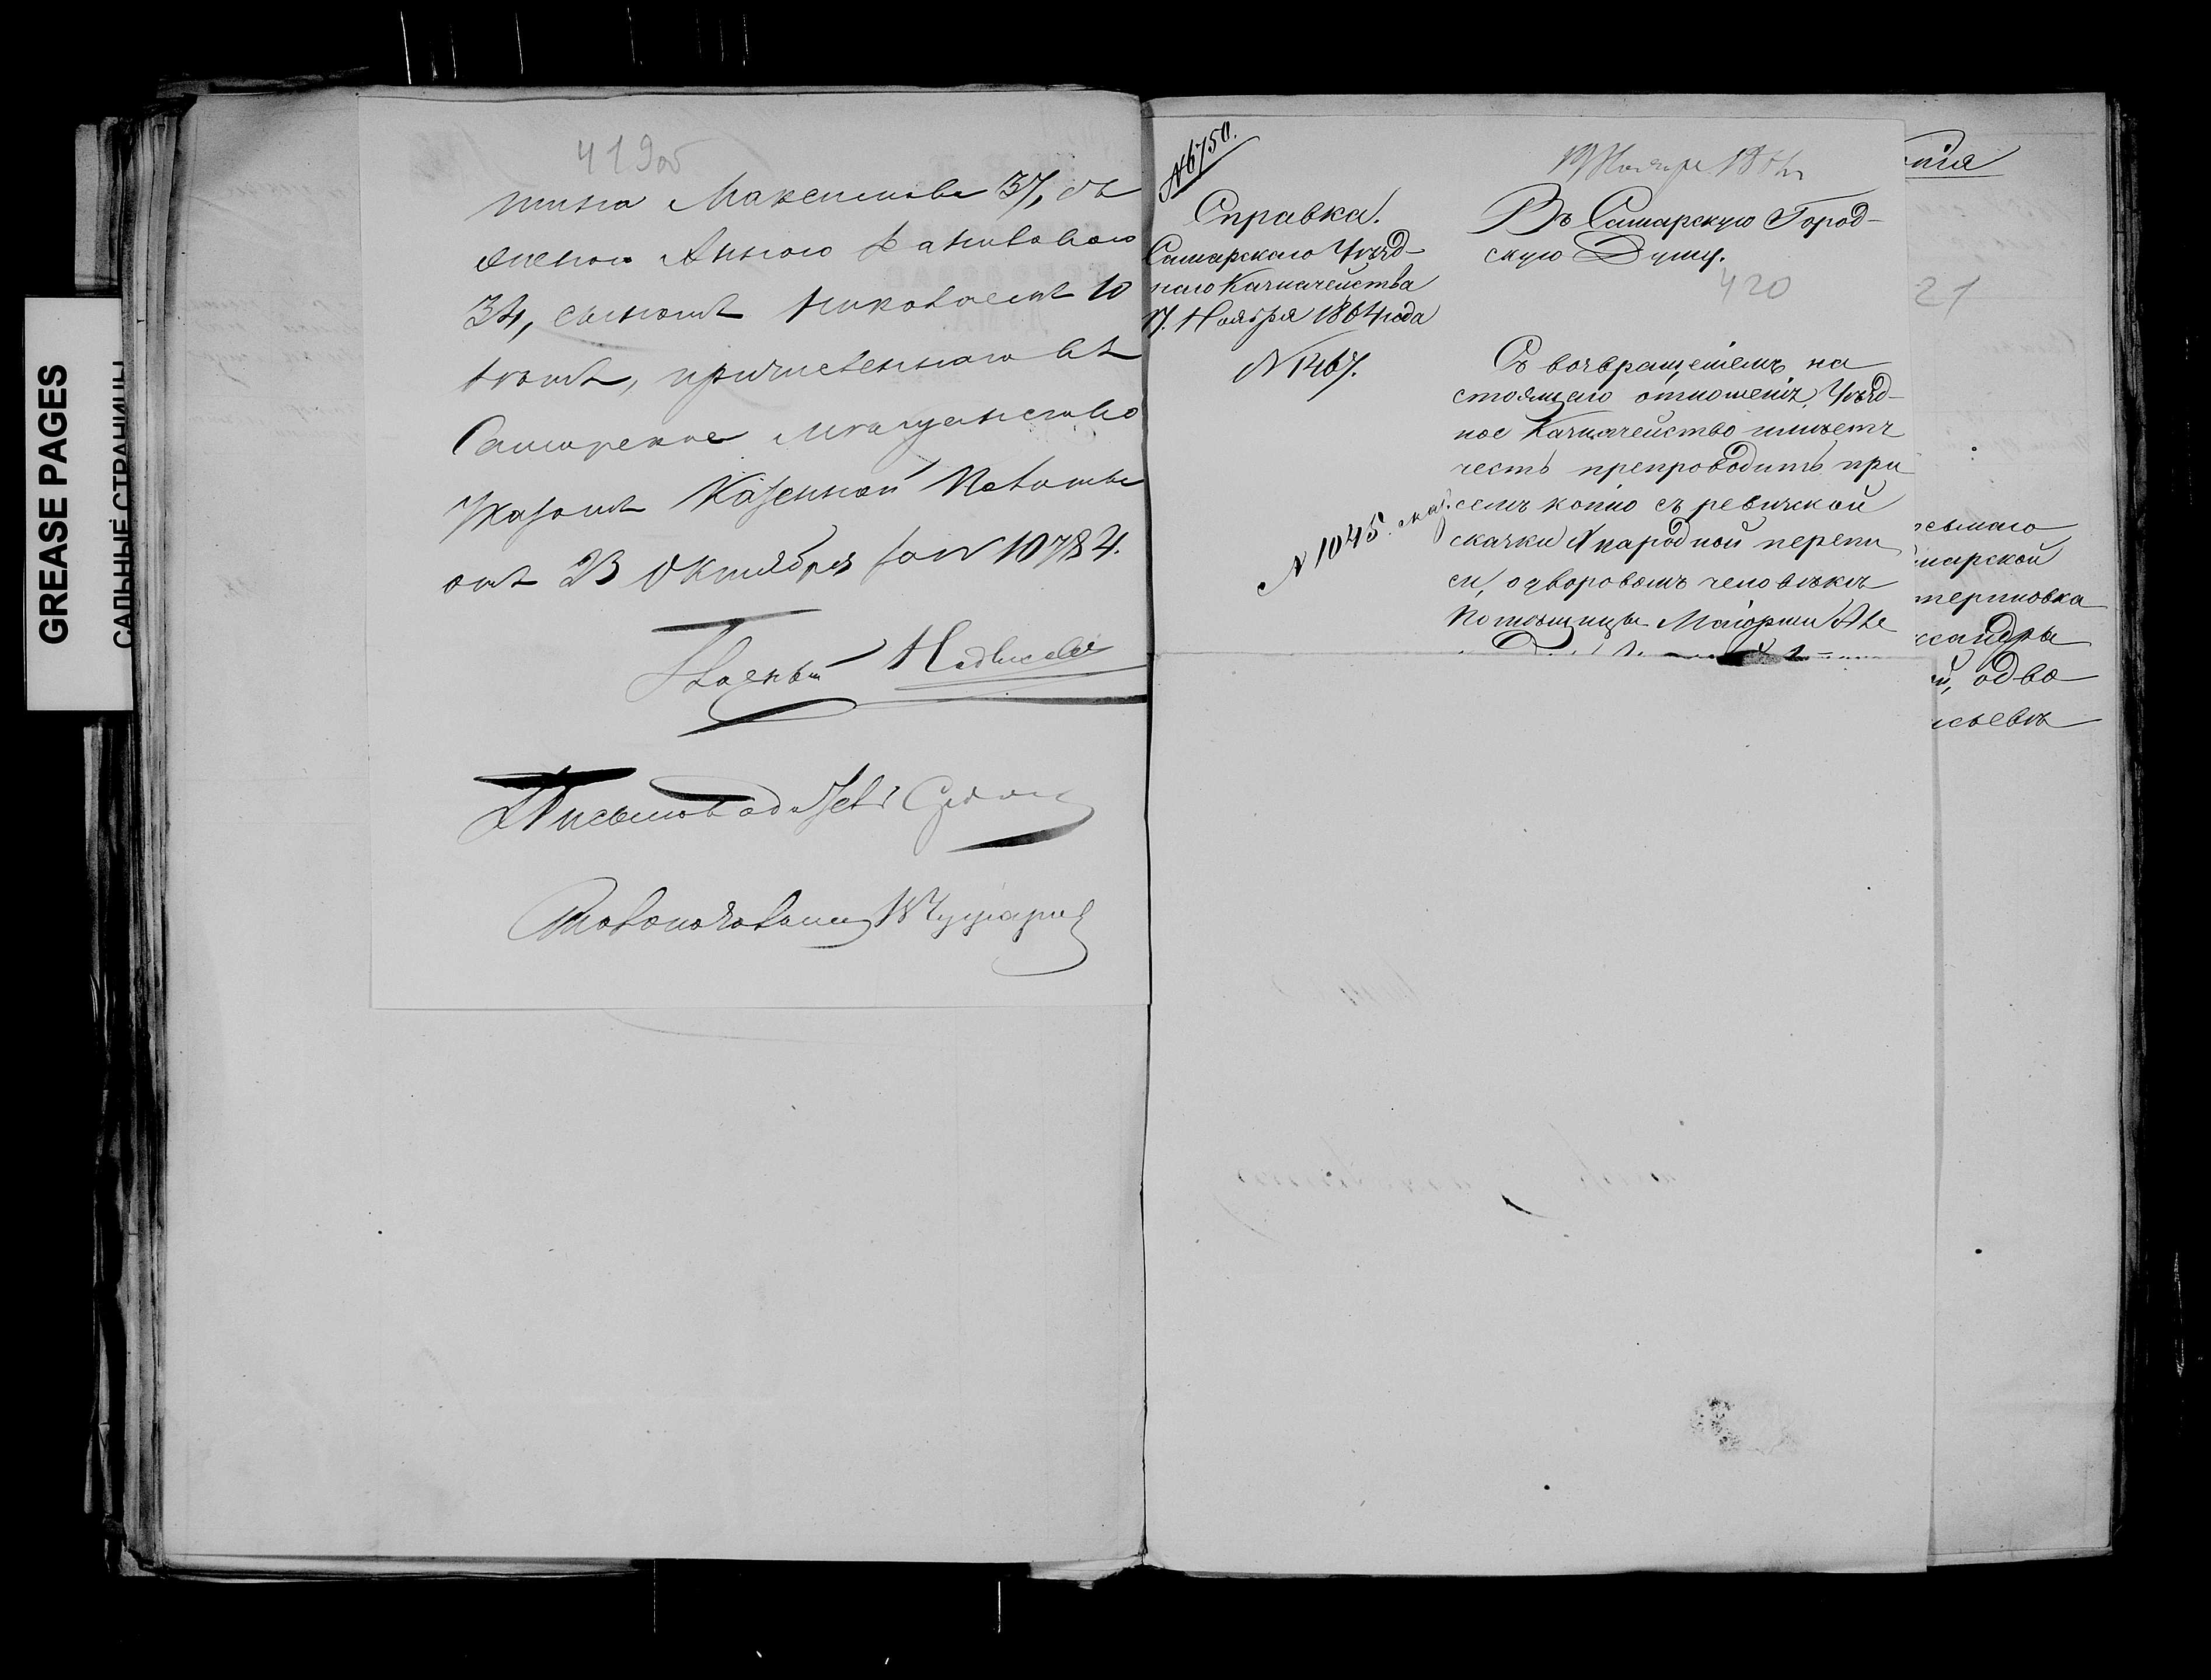 GREASE PAGES
САЛЬНЫЕ СТРАНИЦЫ
419об
тина Максимова 37, съ
женою Анною
34, сыномъ Николаемъ 10
лѣтъ, причисленнаго въ
Самарское мѣщанство
Указомъ Казенной Палаты
отъ 23 Октября за N 10784.
Гласный
Письмоводитель
Столоначальникъ
N 6750.
Справка.
Самарскаго Уѣзд-
наго Казначейства
17. Ноября 1864 года
N 1467.
N 1045.
19 Ноября 1864
Въ Самарскую Город-
скую Думу.
420
Съ возвращеніемъ на
стоящаго отношенія, Уѣзд-
ное Казначейство имѣетъ
честь препроводить при
семъ копію съ ревизской
сказки X народной перепи
си, о дворовомъ человѣкѣ
Помѣщицы Маіорши Але
пія
21
марской
териновка
ксандры
й, одво
сьевнѣ